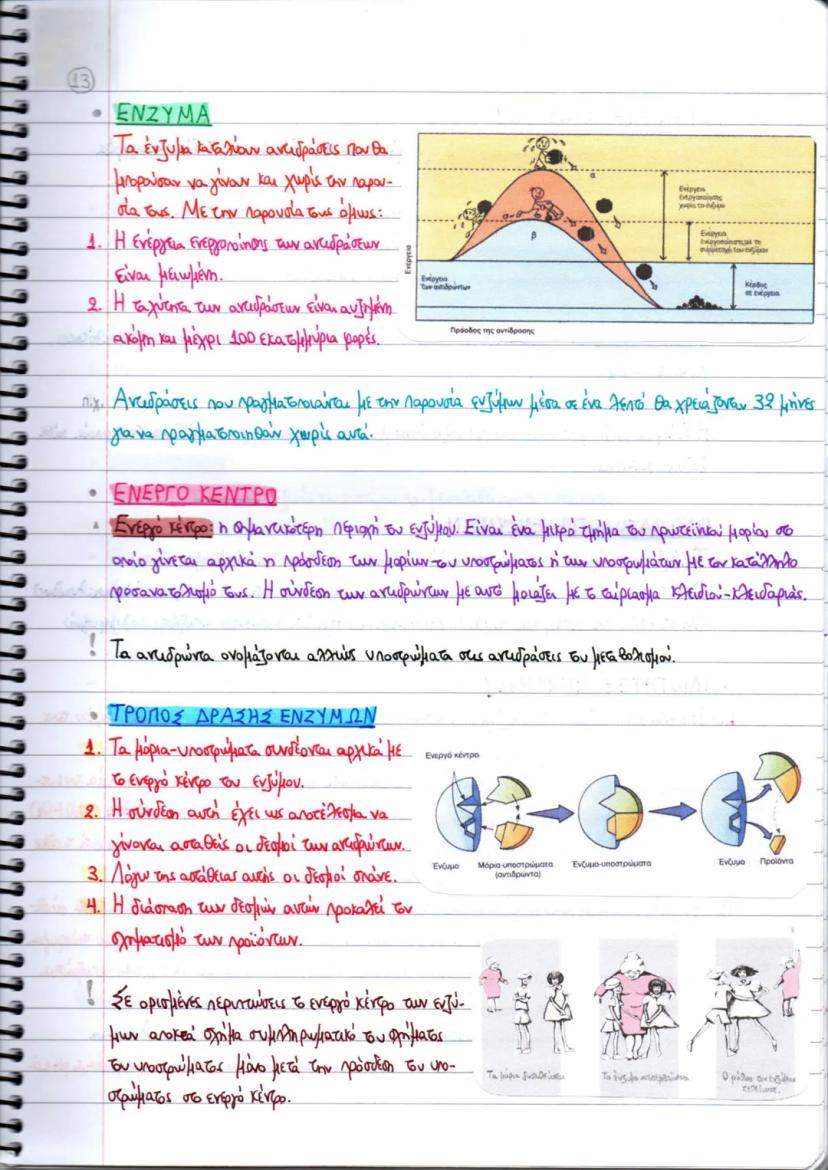 13
• ΕΝΖΥΜΑ
Τα ένζυμα καταλύουν αντιδράσεις που θα
μπορούσαν να γίνουν και χωρίς την παρου-
σία τους. Με την παρουσία τους όμως:
1. Η ενέργεια ενεργοποίησης των αντιδράσεων
είναι μειωμένη.
2. Η ταχύτητα των αντιδράσεων είναι αυξημένη
ακόμη και μέχρι 100 εκατομμύρια φορές.
α
β
Ενέργεια
Ενέργεια
ενεργοποίησης
χωρίς το ένζυμο
Ενέργεια
ενεργοποίησης με τη
συμμετοχή του ενζύμου
Ενέργεια
των αντιδρώντων
Κέρδος
σε ενέργεια
Πρόοδος της αντίδρασης
π.χ. Αντιδράσεις που πραγματοποιούνται με την παρουσία ενζύμων μέσα σε ένα λεπτό θα χρειάζονταν 32 μήνες
για να πραγματοποιηθούν χωρίς αυτά.
• ΕΝΕΡΓΟ ΚΕΝΤΡΟ
Ενεργό κέντρο: η σημαντικότερη περιοχή του ενζύμου. Είναι ένα μικρό τμήμα του πρωτεϊνικού μορίου στο
οποίο γίνεται αρχικά η πρόσδεση των μορίων του υποστρώματος ή των υποστρωμάτων με τον κατάλληλο
προσανατολισμό τους. Η σύνδεση των αντιδρώντων με αυτό μοιάζει με το ταίριασμα κλειδιού-κλειδαριάς.
! Τα αντιδρώντα ονομάζονται αλλιώς υποστρώματα στις αντιδράσεις του μεταβολισμού.
• ΤΡΟΠΟΣ ΔΡΑΣΗΣ ΕΝΖΥΜΩΝ
1. Τα μόρια-υποστρώματα συνδέονται αρχικά με
το ενεργό κέντρο του ενζύμου.
2. Η σύνδεση αυτή έχει ως αποτέλεσμα να
γίνονται ασταθείς οι δεσμοί των αντιδρώντων.
3. Λόγω της αστάθειας αυτής οι δεσμοί σπάνε.
4. Η διάσπαση των δεσμών αυτών προκαλεί τον
σχηματισμό των προϊόντων.
Ενεργό κέντρο
Ένζυμο
Μόρια-υποστρώματα
(αντιδρώντα)
Ένζυμο-υποστρώματα
Ένζυμο
Προϊόντα
! Σε ορισμένες περιπτώσεις το ενεργό κέντρο των ενζύ-
μων αποκτά σχήμα συμπληρωματικό του σχήματος
του υποστρώματος μόνο μετά την πρόσδεση του υπο-
στρώματος στο ενεργό κέντρο.
Τα μόρια
Το ένζυμο
Ο ρόλος του ενζύμου